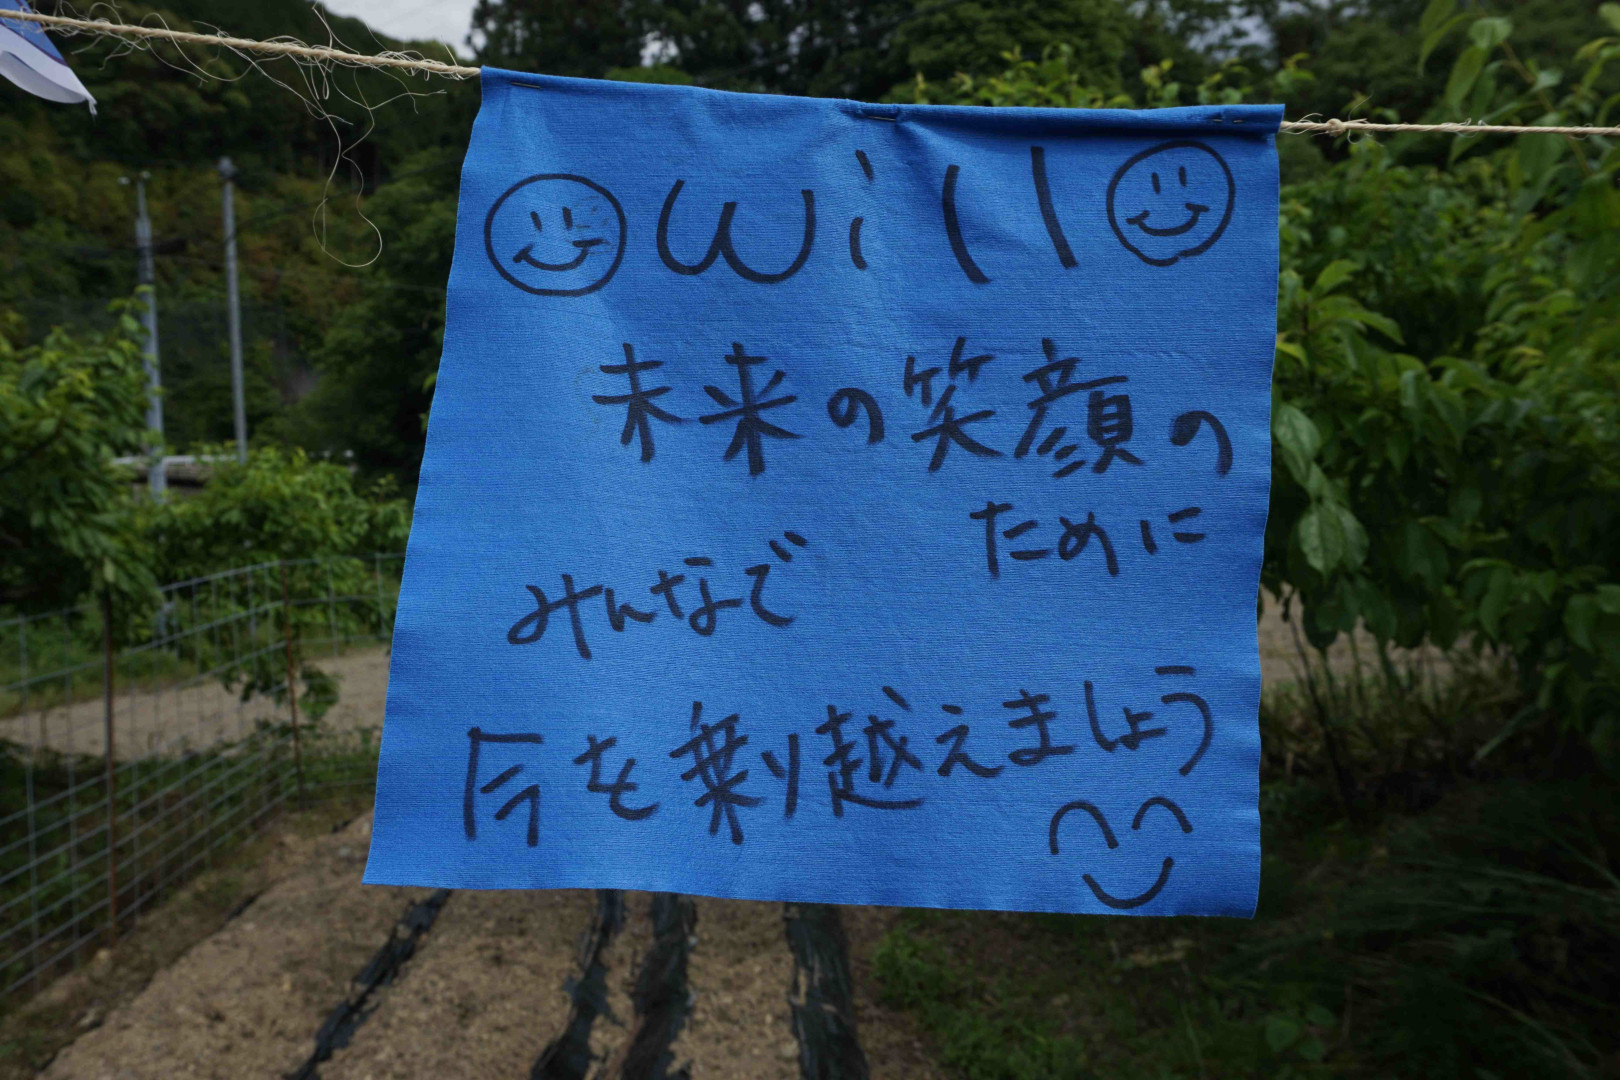 will
未来の笑顔の
ために
みんなで
今を乗り越えましょう